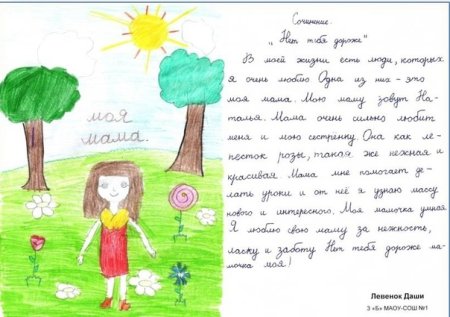 моя
мама.
Сочинение.
„Нет тебя дороже"
В моей жизни есть люди, которых
я очень люблю Одна из них - это
моя мама. Мою маму зовут На-
талья. Мама очень сильно любит
меня и мою сестренку. Она как ле-
песток розы, такая же нежная и
красивая. Мама мне помогает де-
лать уроки и от неё я узнаю массу
нового и интересного. Моя мамочка умная.
Я люблю свою маму за нежность,
ласку и заботу Нет тебя дороже ма-
мочка моя!
Левенок Даши
3 «Б» МАОУ-СОШ №1